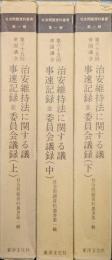 社会問題資料叢書
第一輯
帝国議会
治安維持法に関する議
事速記録並委員会議録(上)
社会問題資料研究会編
東洋文化社
社会問題資料叢書
第一輯
帝国議会
治安維持法に関する議
事速記録並委員会議録(中)
社会問題資料研究会編
東洋文化社
社会問題資料叢書
第一輯
帝国議会
治安維持法に関する議
事速記録並委員会議録(下)
社会問題資料研究会編
東洋文化社